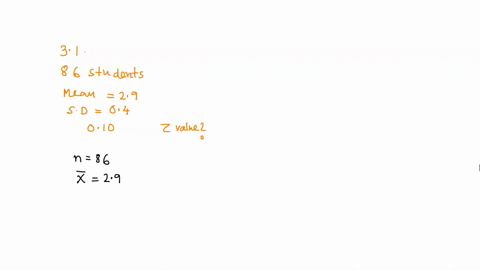 3.1
86 students
Mean = 2.9
S.D = 0.4
0.10 Z value?
n = 86
X̅ = 2.9